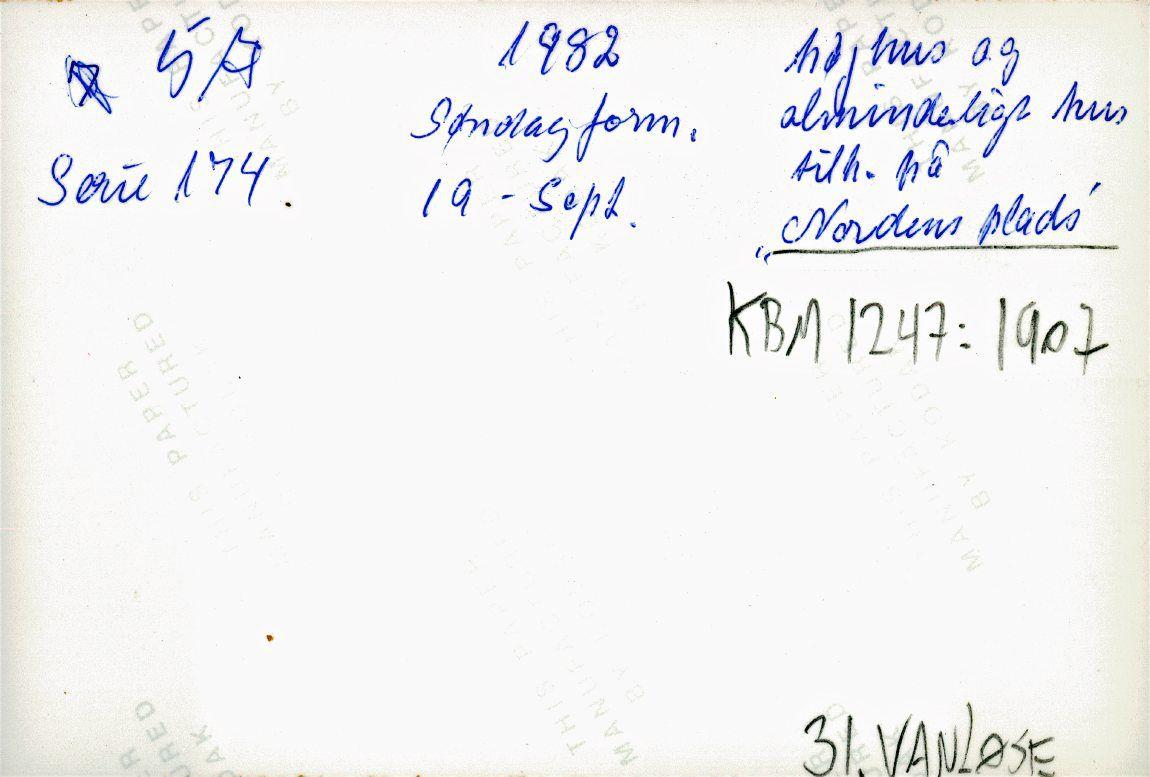 5A
Serie 174.
1982
Søndag form.
19 - Sept.
højhus og
almindeligt hus
tilh. på
„Nordens plads"
KBM 1247:1907
31. VANLØSE
THIS PAPER
MANUFACTURED
BY KODAK